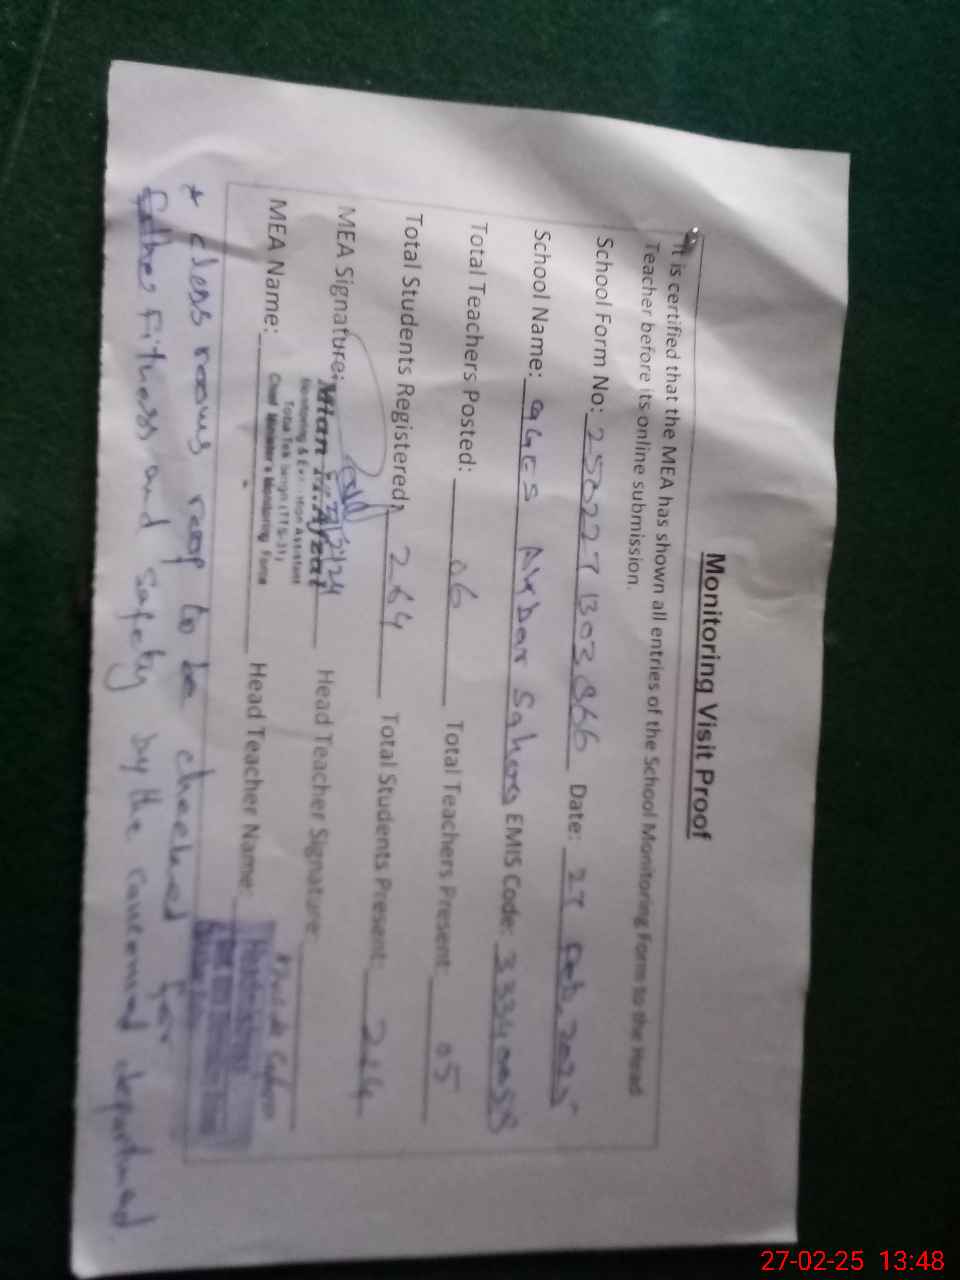 Monitoring Visit Proof
It is certified that the MEA has shown all entries of the School Monitoring Form to the Head
Teacher before its online submission.
School Form No: 2502271303866 Date: 27 Feb, 2025
School Name: GGES Akbar Sahoo EMIS Code: 33340058
Total Teachers Posted: 06 Total Teachers Present: 05
Total Students Registered: 264 Total Students Present: 224
MEA Signature: Head Teacher Signature:
Mian
Monitoring & Assistant
Chief Minister's Monitoring Force
MEA Name: Head Teacher Name:
* class rooms roof to be checked for
fitness and safety by the concerned department.
27-02-25 13:48